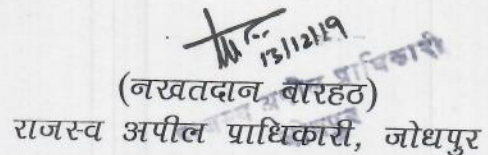 13/12/19
(नखतदान बारहठ)
राजस्व अपील प्राधिकारी, जोधपुर